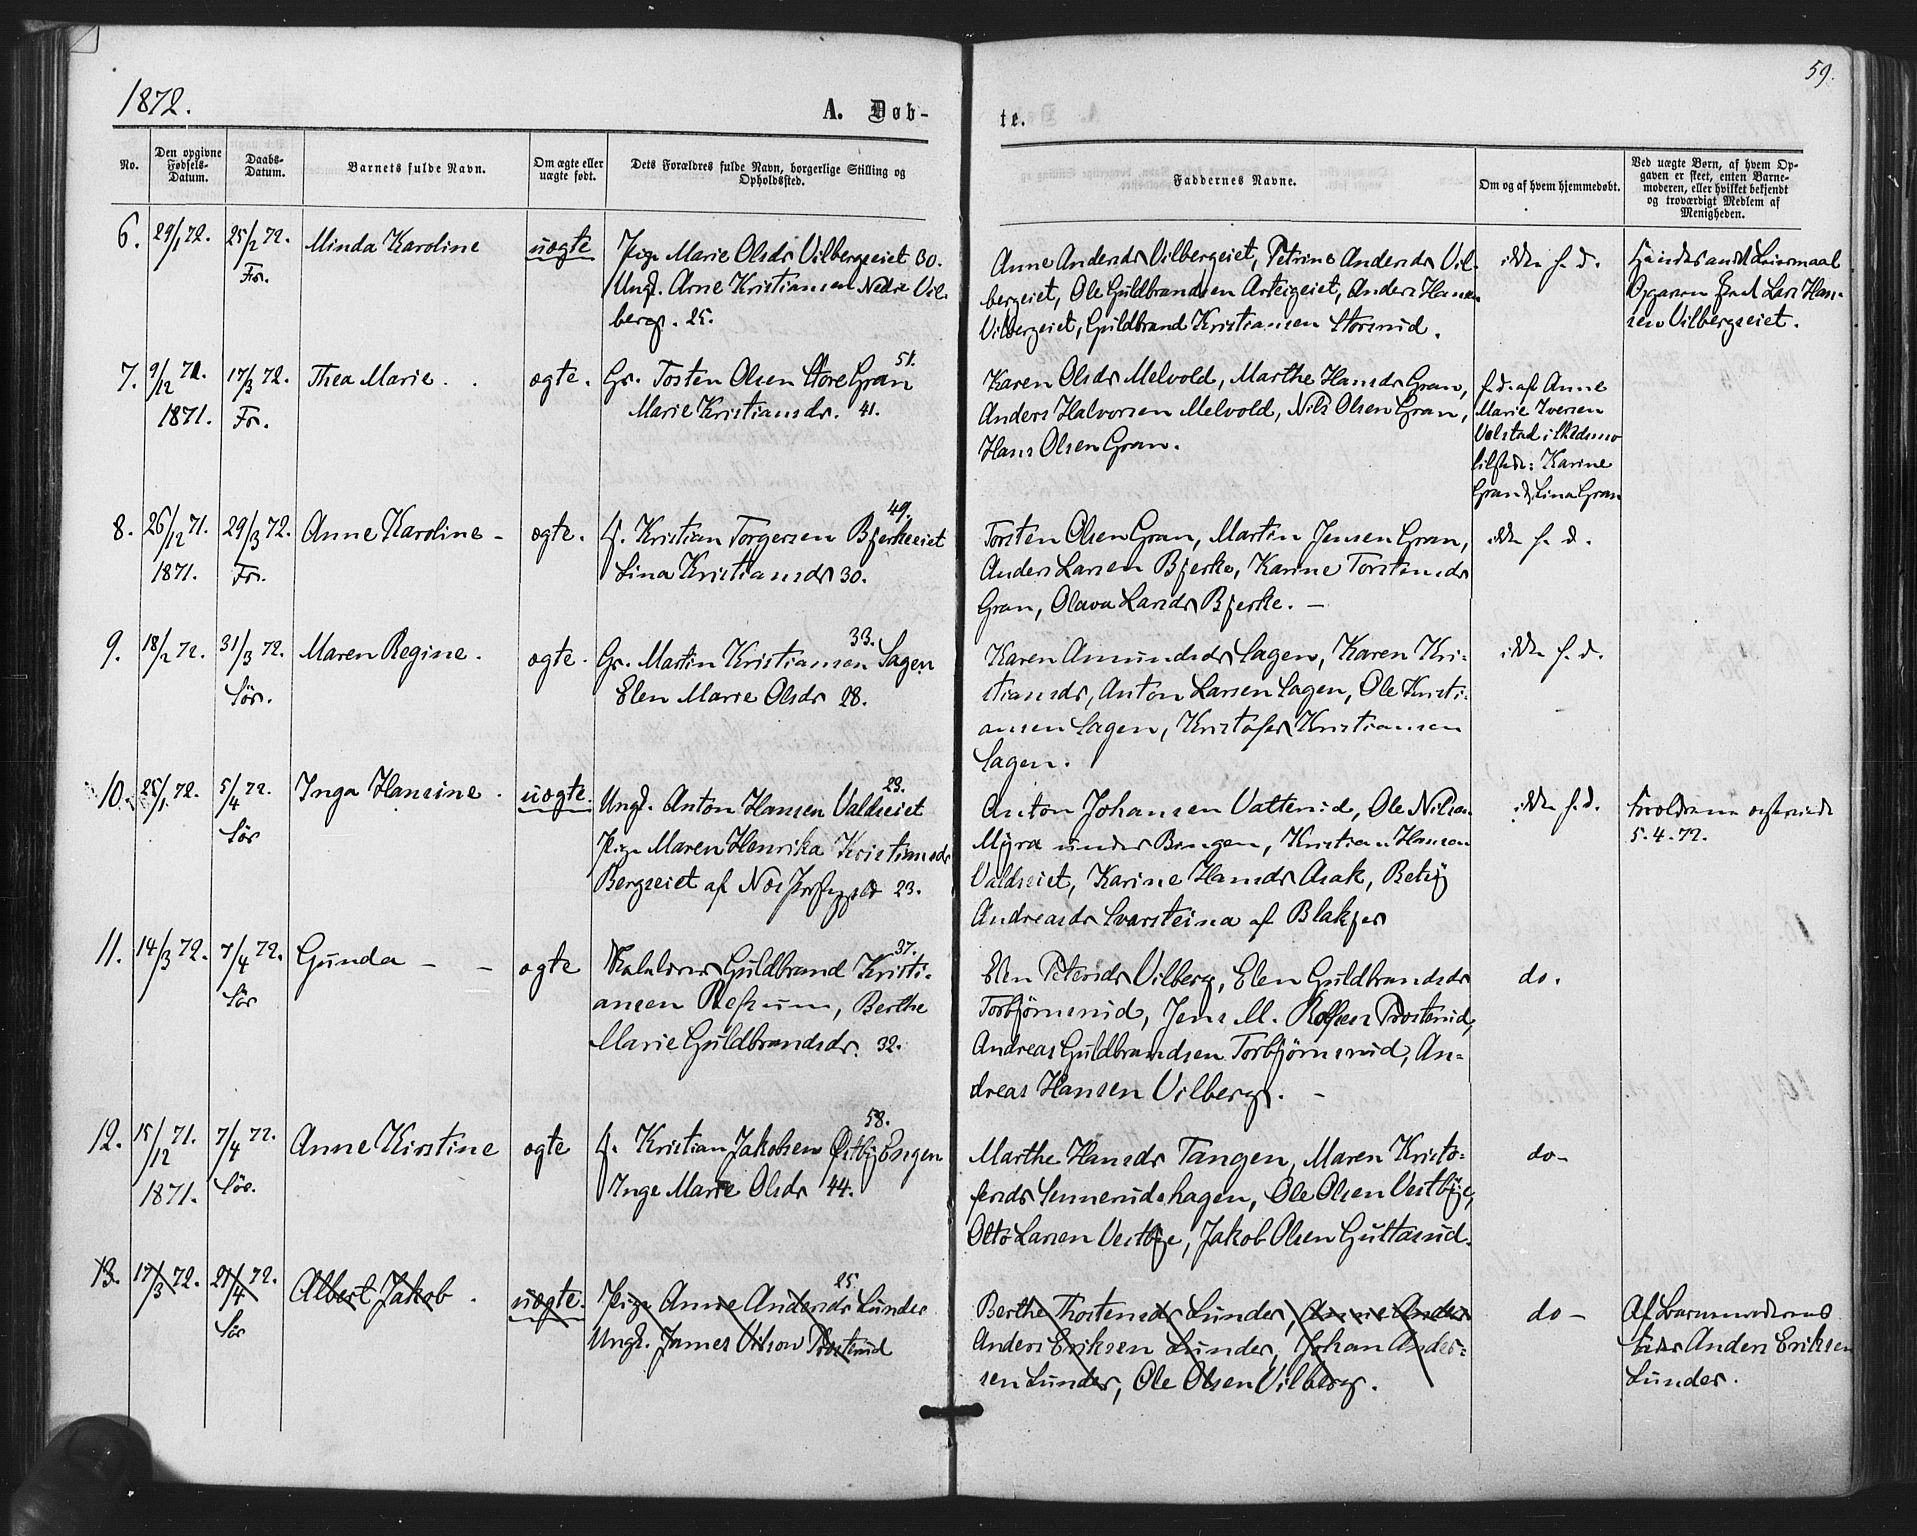 59.
1872.
A. Døb-
te.
No.
Den opgivne Fødsels-Datum.
Daabs-Datum.
Barnets fulde Navn.
Om ægte eller uægte født.
Dets Forældres fulde Navn, borgerlige Stilling og Opholdssted.
Faddernes Navne.
Om og af hvem hjemmedøbt.
Ved uægte Børn, af hvem Op-
gaven er skeet, enten Barne-
moderen, eller hvilket bekjendt
og troværdigt Medlem af
Menigheden.
6. 29/1 72. 25/2 72. Minda Karoline uægte Pige Marie Olsdr Vilbergseiet 30.
Fr. Ungk. Arne Kristiansen Nedre Vil-
berg. 25.
Anne Andersdr Vilbergeiet, Petrine Andersdr Vil-
bergeiet, Ole Guldbrandsen Asteigeiet, Anders Hansen
Vilbergeiet, Guldbrand Kristiansen Storsrud.
ikke h. d.
Lars Han-
sen Vilbergseiet.
7. 9/12 71. 17/3 72. Thea Marie. ægte. Gr. Tosten Olsen Store Gran 51.
1871. Fr. Marie Kristiansdr. 41.
Karen Olsdr Melvold, Marthe Hansdr Gran,
Anders Halvorsen Melvold, Nils Olsen Gran,
Hans Olsen Gran.
h. d. af Anne
Marie Iversen
Volstad i Skedsmo
tilstede: Karine
Gran & Lina Gran
8. 26/12 71. 29/3 72. Anne Karoline - ægte. Kristian Torgersen Bjerkeeiet 49.
1871. Fr. Lina Kristiansdr 30.
Torsten Olsen Gran, Martin Jensen Gran,
Anders Larsen Bjerke, Karine Torstensdr
Gran, Olava Larsdr Bjerke. -
ikke h. d.
9. 18/2 72. 31/3 72. Maren Regine. ægte. Gr. Martin Kristiansen Sagen 33.
Sør. Elen Marie Olsdr 28.
Karen Amundsdr Sagen, Karen Kri-
stiansdr, Anton Larsen Sagen, Ole Kristi-
ansen Sagen, Kristofer Kristiansen
Sagen.
ikke h. d.
10. 25/1 72. 5/4 72. Inga Hansine. uægte. Ungk. Anton Hansen Valdseiet 23.
Sør Pige Maren Henrika Kristiansdr
Bergseiet af Nes Præstegjeld 23.
Anton Johansen Vatterud, Ole Nilsen
Myra under Bingen, Kristian Hansen
Valdseiet, Karine Hansdr Asak, Betsy
Andreasdr Svarsteina af Blakjer
ikke h. d.
5.4.72.
11. 14/3 72. 7/4 72. Gunda - - ægte Guldbrand Kristi- 37.
Sør ansen Refsum, Berthe
Marie Guldbrandsdr. 32.
Elen Petersdr Vilberg, Elen Guldbrandsdr
Torbjörnsrud, Jens M. Rolfsen Prosterud,
Andreas Guldbrandsen Torbjörnsrud, An-
dreas Hansen Vilberg. -
do.
12. 15/12 71. 7/4 72. Anne Kirstine ægte Kristian Jakobsen Østby Engen 58.
1871. Sør. Inge Marie Olsdr 44.
Marthe Hansdr Tangen, Maren Kristo-
fersdr Sennerudshagen, Ole Olsen Vestbye,
Otto Larsen Vestbye, Jakob Olsen Guttasrud.
do-
13. 17/3 72. 21/4 72. Albert Jakob. uægte. Pige Anne Andersdr Lunder 25.
Sør Ungk. James Vilson Prosterud
Berthe Thostensdr Lunder, Annie Anders
Anders Eriksen Lunder, Johan Anders-
sen Lunder, Ole Olsen Vilberg.
do -
Af Barnmoderens
Fader Anders Eriksen
Lunder.